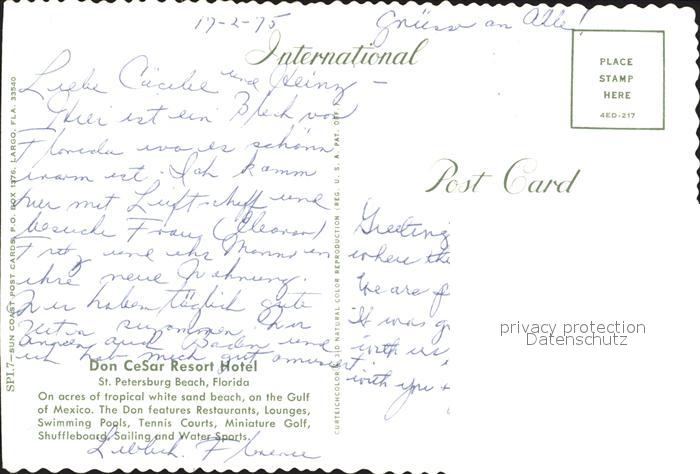 17-2-75 Grüsse an Alle!
International
PLACE
STAMP
HERE
4ED-217
Post Card
Liebe Cäcilie und Heinz –
Hier ist ein Blick von
Florida wo es schön
warm ist. Ich kamm
her mit Luft-schiff und
besuche Frau (Eleanor)
Fritz und ihr Mann in
ihre neue Wohnung.
Wir haben täglich gute
Zeiten zusammen. Wir
auch Baden und
ich hab mich gut amusiert
Don CeSar Resort Hotel
St. Petersburg Beach, Florida
On acres of tropical white sand beach, on the Gulf
of Mexico. The Don features Restaurants, Lounges,
Swimming Pools, Tennis Courts, Miniature Golf,
Shuffleboard, Sailing and Water Sports.
Florence
SPI.7—SUN COAST POST CARDS, P.O. BOX 1376, LARGO, FLA. 33540
CURTEICHCOLOR 3-D NATURAL COLOR REPRODUCTION (REG. U. S. A. PAT. OFF
Greeting
where the
We are
it was g
with us
with you +
privacy protection
Datenschutz